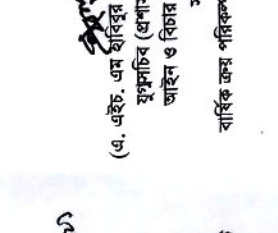 (এ. এইচ. এম হাবিবুর
যুগ্মসচিব (প্রশাস
আইন ও বিচার
বার্ষিক ক্রয় পরিকল